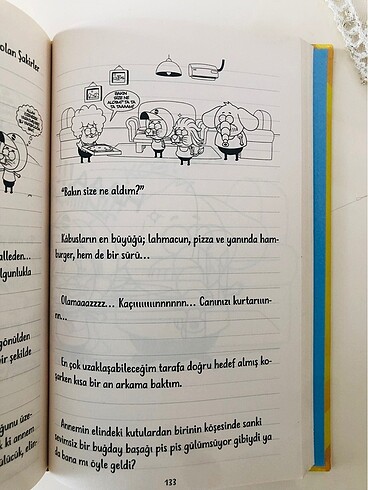 olan Şakirler
BAKIN
SİZE NE
ALDIM!" TA TA
TA TAAAM!
"Bakın size ne aldım?"
Kâbusların en büyüğü; lahmacun, pizza ve yanında ham-
burger, hem de bir sürü...
alleden...
lgunlukla
Olamaaazzzz... Kaçıııııııınnnnnn... Canınızı kurtarıın-
nn...
gönülden
bir şekilde
En çok uzaklaşabileceğim tarafa doğru hedef almış ko-
şarken kısa bir an arkama baktım.
ğunu üze-
k ki annem
lücük, elin-
Annemin elindeki kutulardan birinin köşesinde sanki
sevimsiz bir buğday başağı pis pis gülümsüyor gibiydi ya
da bana mı öyle geldi?
133